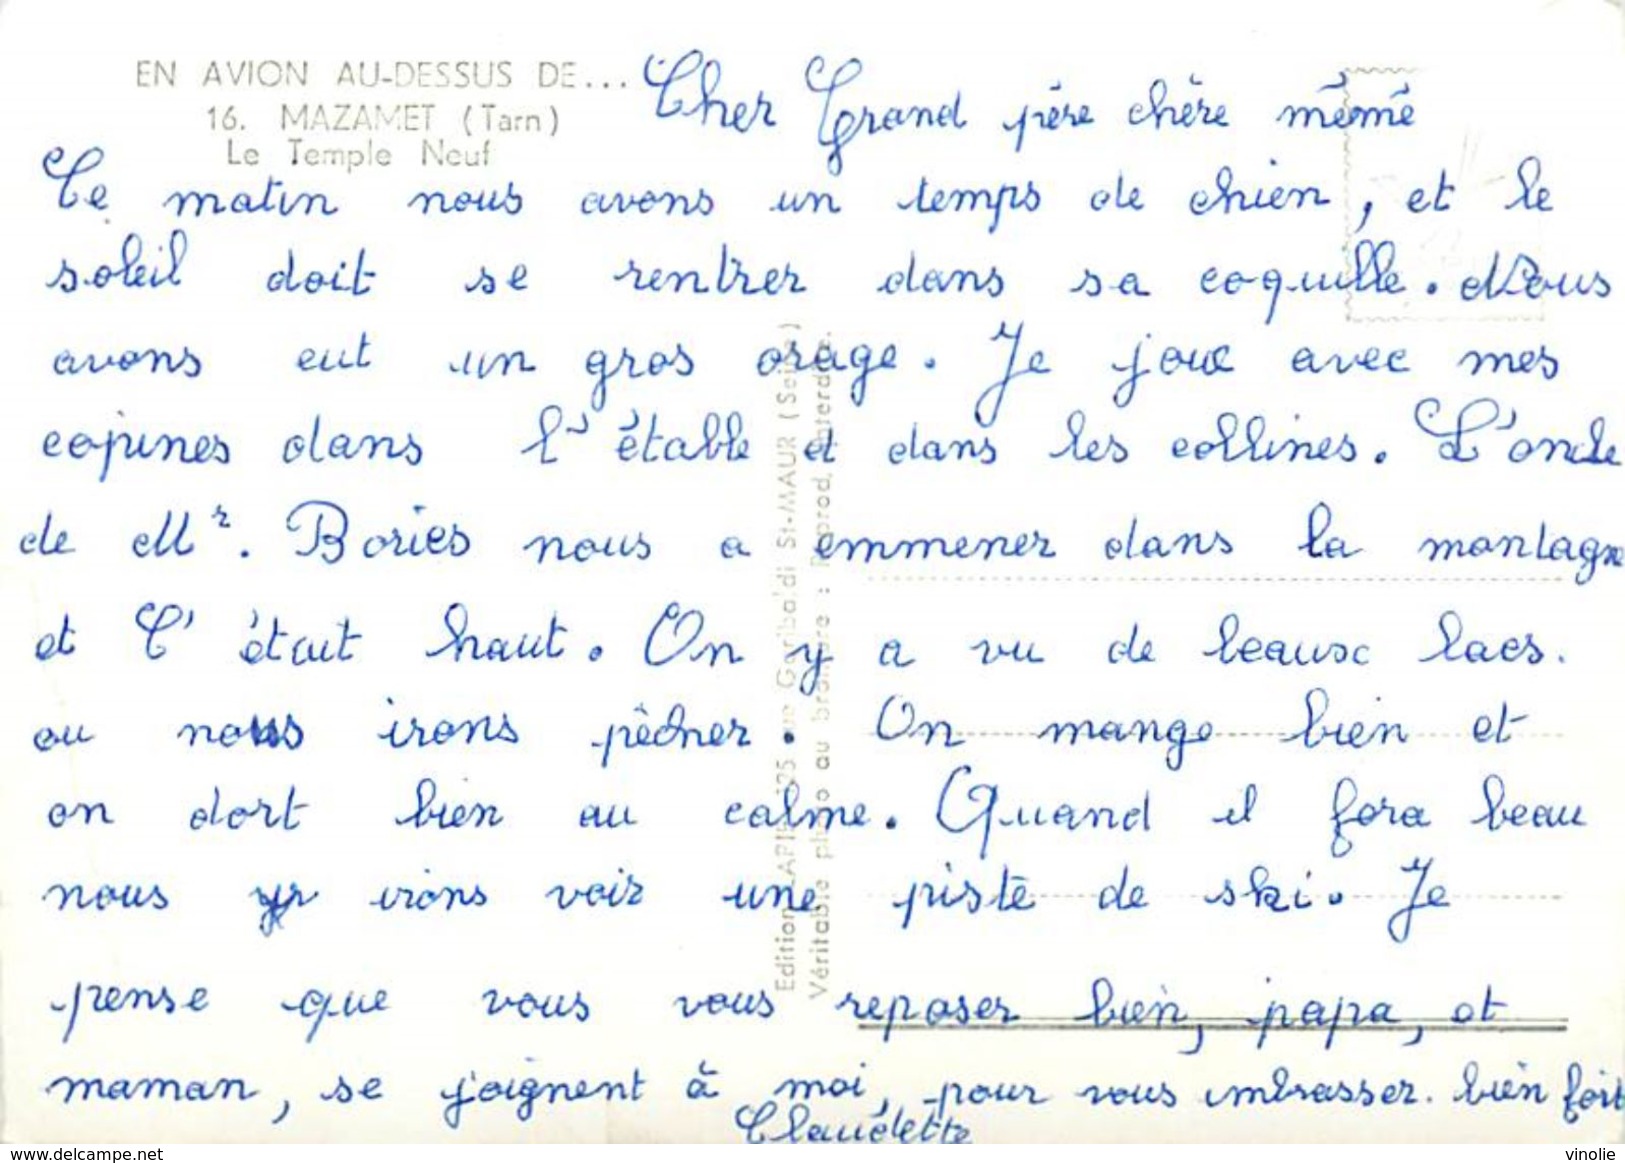 EN AVION AU-DESSUS DE...
16. MAZAMET (Tarn)
Le Temple Neuf
Cher Grand père chère mémé
Ce matin nous avons un temps de chien, et le
soleil doit se rentrer dans sa coquille. Nous
avons eut un gros orage. Je joue avec mes
cojines dans l'étable et dans les collines. L'oncle
de Mr. Bories nous a emmener dans la montagne
et C'était haut. On y a vu de beaux lacs.
ou nous irons pêcher. On mange bien et
on dort bien au calme. Quand il fera beau
nous irons voir une piste de ski. Je
pense que vous vous reposer bien, papa, et
maman, se joignent à moi, pour vous embrasser. bien fort
Claudette
Edition LAPIE 125 rue Garibaldi St-MAUR (Seine)
Véritable photo au bromure : Reprod. interdite.
www.delcampe.net
vinolie